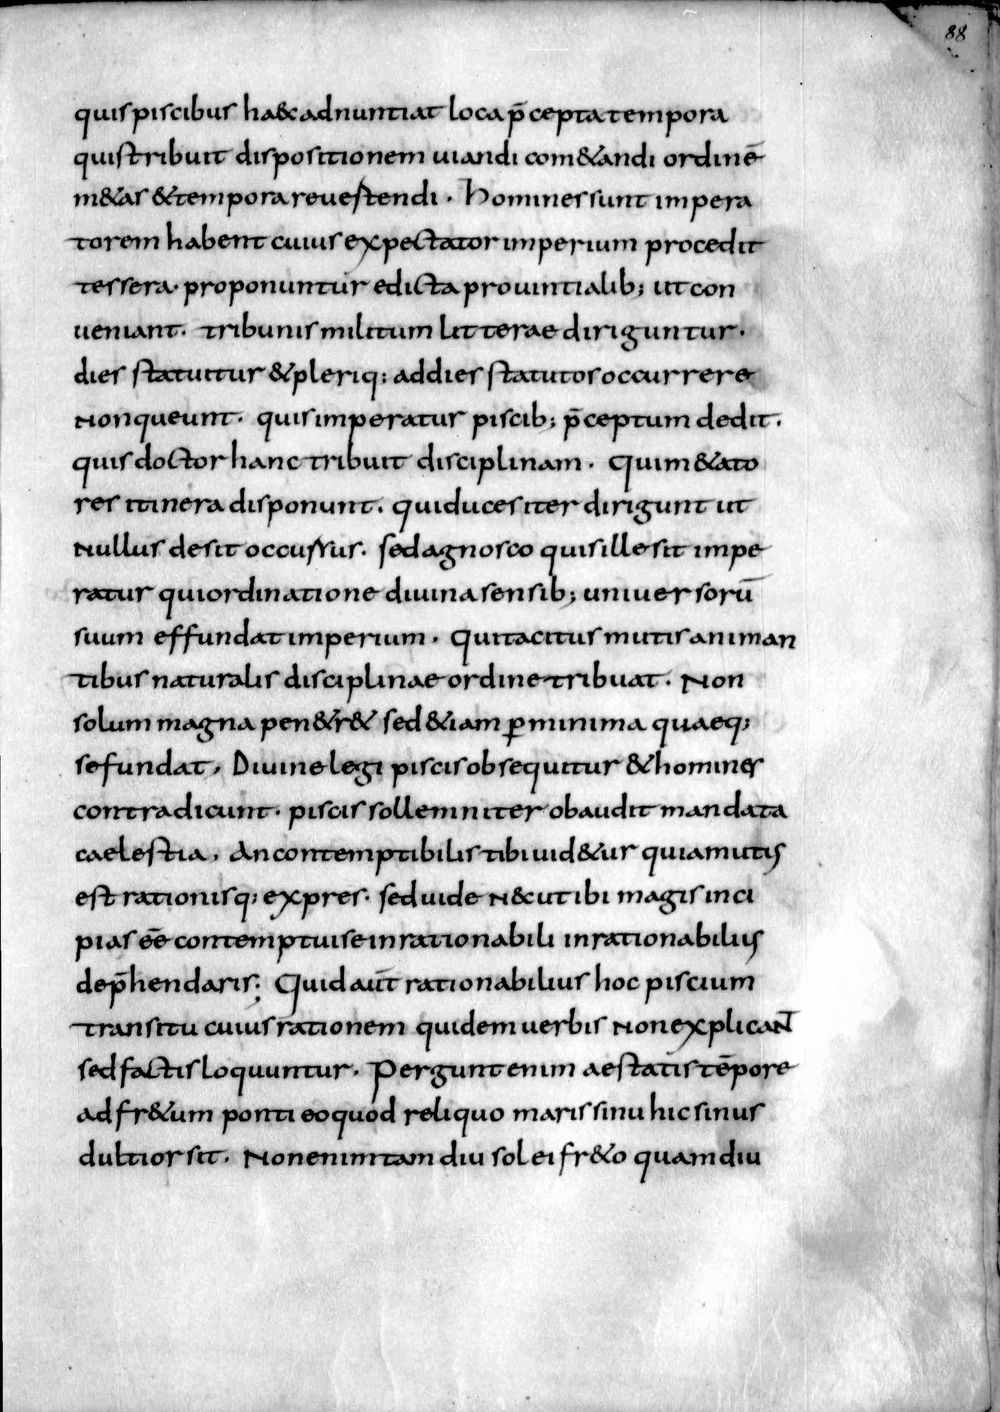 88
quis piscibus ha&c adnuntiat loca p̄cepta tempora
quis tribuit dispositionem uiandi com&andi ordinē
m&as & tempora reuestendi. Homines sunt impera
torem habent cuius expectator imperium procedit
tessera. proponuntur edicta prouintialib; ut con
ueniant. tribunis militum litterae diriguntur.
dies statuitur & pleriq; ad dies statutos occurrere
Nonqueunt. quis imperatur piscib; p̄ceptum dedit.
quis doctor hanc tribuit disciplinam. Qui m&ato
res itinera disponunt. qui duces iter dirigunt ut
Nullus desit occursus. sed agnosco quis ille sit impe
ratur qui ordinatione diuina sensib; uniuersorū
suum effundat imperium. Qui tacitus mutis animan
tibus naturalis disciplinae ordine tribuat. Non
solum magna pen&r& sed &iam ꝑ minima quaeq;
se fundat, Diuine legi piscis obsequitur & homines
contradicunt. piscis sollemniter obaudit mandata
caelestia, An contemptibilis tibi uid&ur quia mutis
est rationisq; expres. sed uide N&cu tibi magis inci
pias eē contemptui se inrationabili inrationabilius
dep̄hendaris; Quid aūt rationabilius hoc piscium
transitu cuius rationem quidem uerbis Non explicaN̄
sed factis loquuntur. Pergunt enim aestatis tēpore
ad fr&um ponti eo quod reliquo maris sinu hic sinus
dultior sit. Non enim tam diu sol ei fr&o quamdiu